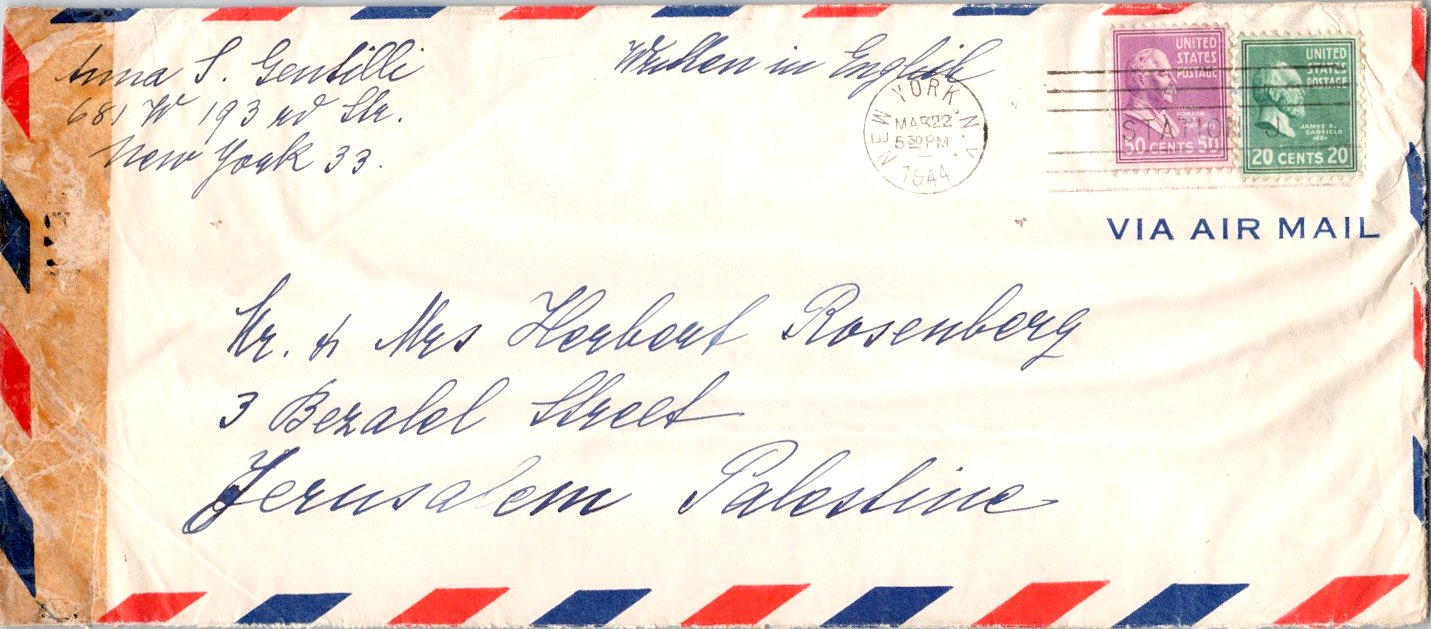 Anna S. Gentilli
681 W 193 rd Str.
New York 33.
Written in English
NEW YORK, N.Y.
MAR 22
5 30 PM
1944
STATION
UNITED
STATES
POSTAGE
50 CENTS 50
UNITED
STATES
POSTAGE
JAMES A.
GARFIELD
20 CENTS 20
VIA AIR MAIL
Mr. & Mrs Herbert Rosenberg
3 Bezalel Street
Jerusalem Palestine